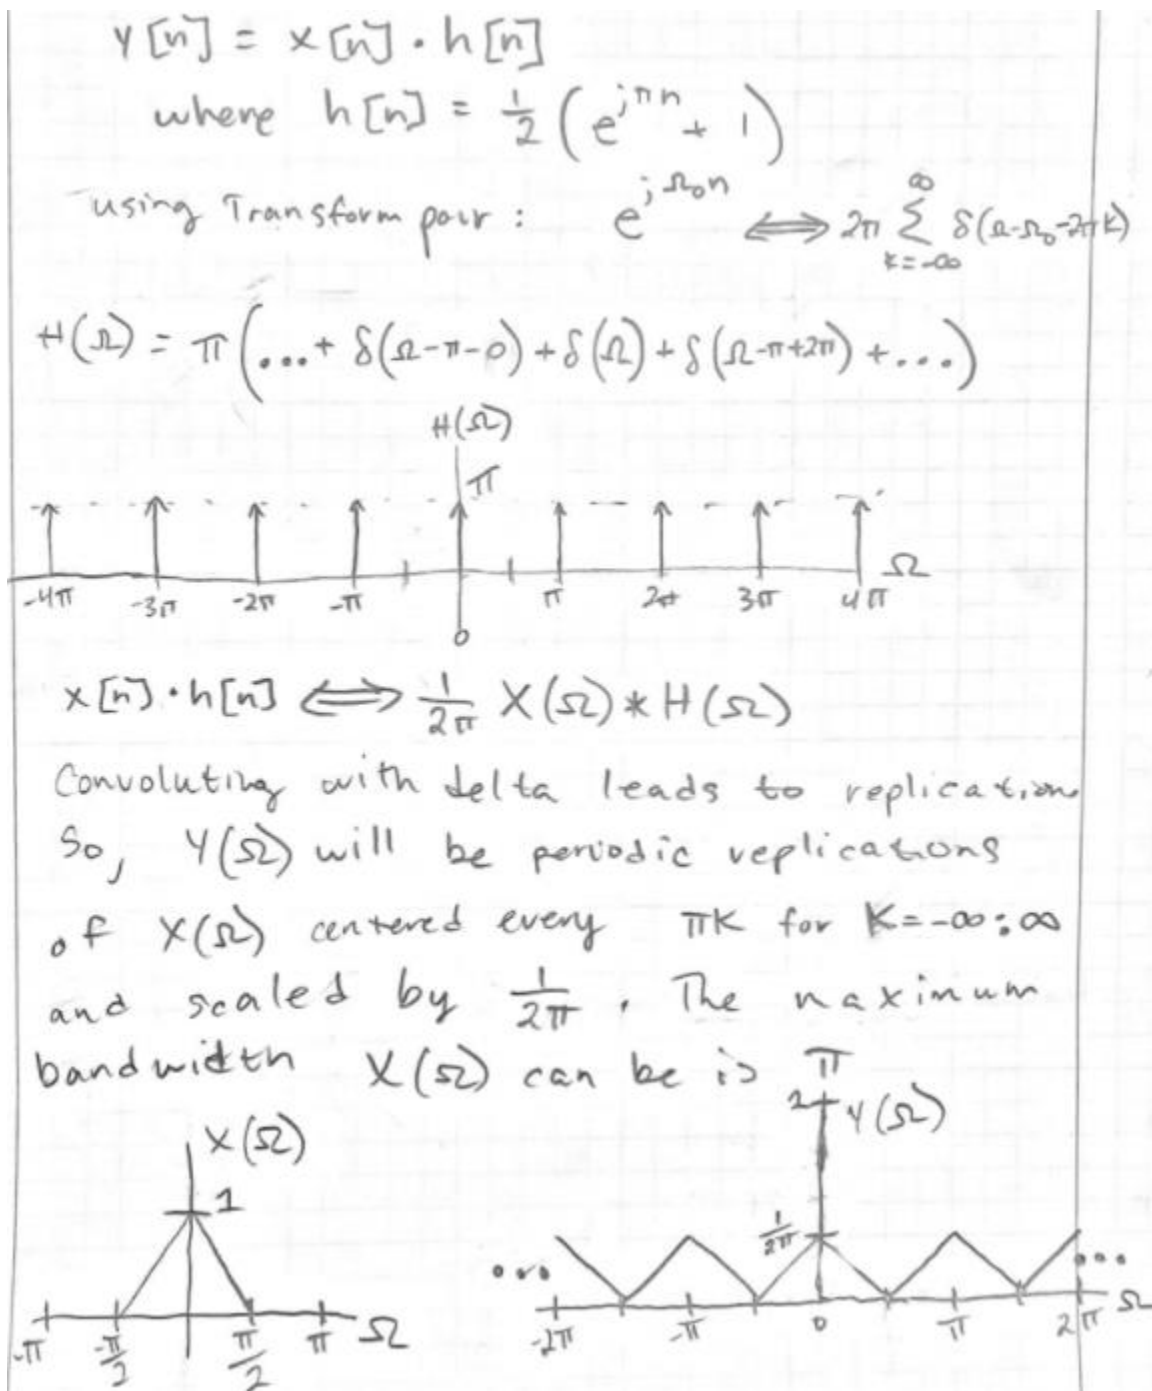 y[n] = x[n] · h[n]
where h[n] = 1/2 (e^{jπn} + 1)
using Transform pair : e^{jΩ₀n} ⟺ 2π ∑_{k=-∞}^{∞} δ(Ω-Ω₀-2πk)
H(Ω) = π(...+ δ(Ω-π-0) + δ(Ω) + δ(Ω-π+2π) + ...)
H(Ω)
π
-4π -3π -2π -π 0 π 2π 3π 4π Ω
x[n] · h[n] ⟺ 1/2π X(Ω) * H(Ω)
Convoluting with delta leads to replication.
So, Y(Ω) will be periodic replications
of X(Ω) centered every πK for K=-∞:∞
and scaled by 1/2π. The maximum
bandwidth X(Ω) can be is π
X(Ω)
1
-π -π/2 π/2 π Ω
Y(Ω)
1/2π
... ...
-2π -π 0 π 2π Ω